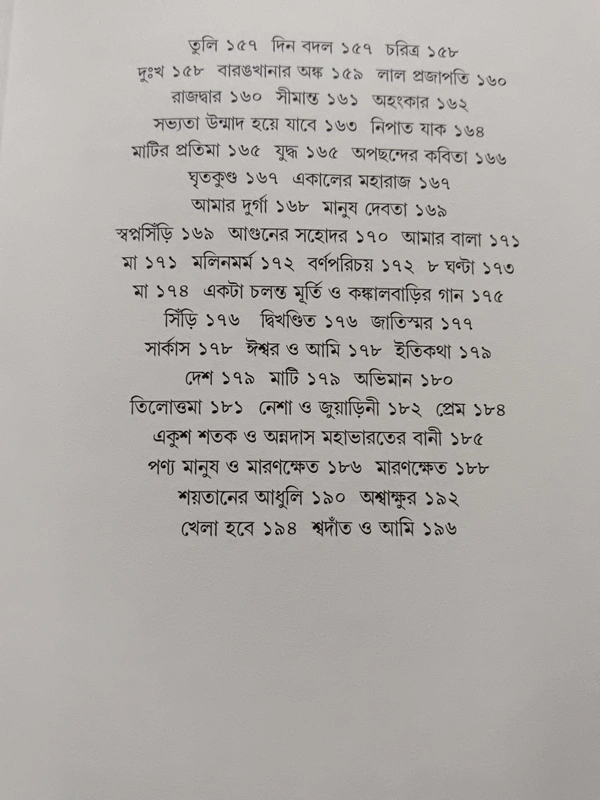 তুলি ১৫৭ দিন বদল ১৫৭ চরিত্র ১৫৮
দুঃখ ১৫৮ বারঙখানার অঙ্ক ১৫৯ লাল প্রজাপতি ১৬০
রাজদ্বার ১৬০ সীমান্ত ১৬১ অহংকার ১৬২
সভ্যতা উন্মাদ হয়ে যাবে ১৬৩ নিপাত যাক ১৬৪
মাটির প্রতিমা ১৬৫ যুদ্ধ ১৬৫ অপছন্দের কবিতা ১৬৬
ঘৃতকুণ্ড ১৬৭ একালের মহারাজ ১৬৭
আমার দুর্গা ১৬৮ মানুষ দেবতা ১৬৯
স্বপ্নসিঁড়ি ১৬৯ আগুনের সহোদর ১৭০ আমার বালা ১৭১
মা ১৭১ মলিনমর্ম ১৭২ বর্ণপরিচয় ১৭২ ৮ ঘন্টা ১৭৩
মা ১৭৪ একটা চলন্ত মূর্তি ও কঙ্কালবাড়ির গান ১৭৫
সিঁড়ি ১৭৬ দ্বিখণ্ডিত ১৭৬ জাতিস্মর ১৭৭
সার্কাস ১৭৮ ঈশ্বর ও আমি ১৭৮ ইতিকথা ১৭৯
দেশ ১৭৯ মাটি ১৭৯ অভিমান ১৮০
তিলোত্তমা ১৮১ নেশা ও জুয়াড়িনী ১৮২ প্রেম ১৮৪
একুশ শতক ও অন্নদাস মহাভারতের বানী ১৮৫
পণ্য মানুষ ও মারণক্ষেত ১৮৬ মারণক্ষেত ১৮৮
শয়তানের আধুলি ১৯০ অশ্বাক্ষুর ১৯২
খেলা হবে ১৯৪ শ্বদাঁত ও আমি ১৯৬